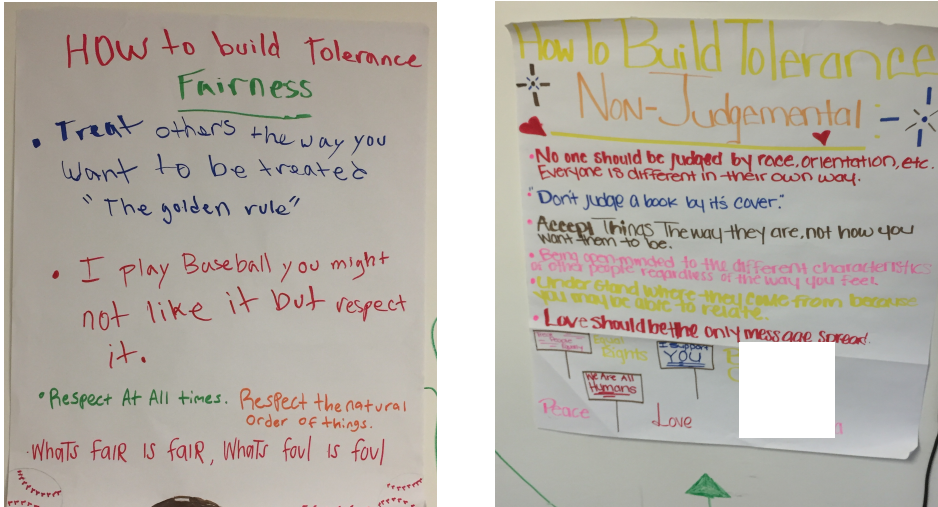 HOW to build Tolerance
Fairness
• Treat others the way you
want to be treated
"The golden rule"
• I play Baseball you might
not like it but respect
it.
• Respect At All times. Respect the natural
order of things.
Whats fair is fair, Whats foul is foul
How To Build Tolerance
Non-Judgemental
• No one should be judged by race, orientation, etc.
Everyone is different in their own way.
"Don't judge a book by it's cover."
• Accept Things The way they are, not how you
want them to be.
• Being open-minded to the different characteristics
of other people regardless of the way you feel.
• Understand where they come from because
you may be able to relate.
• Love should be the only message spread!
Equal
Rights
I Support
YOU
We Are All
Humans
Peace
Love